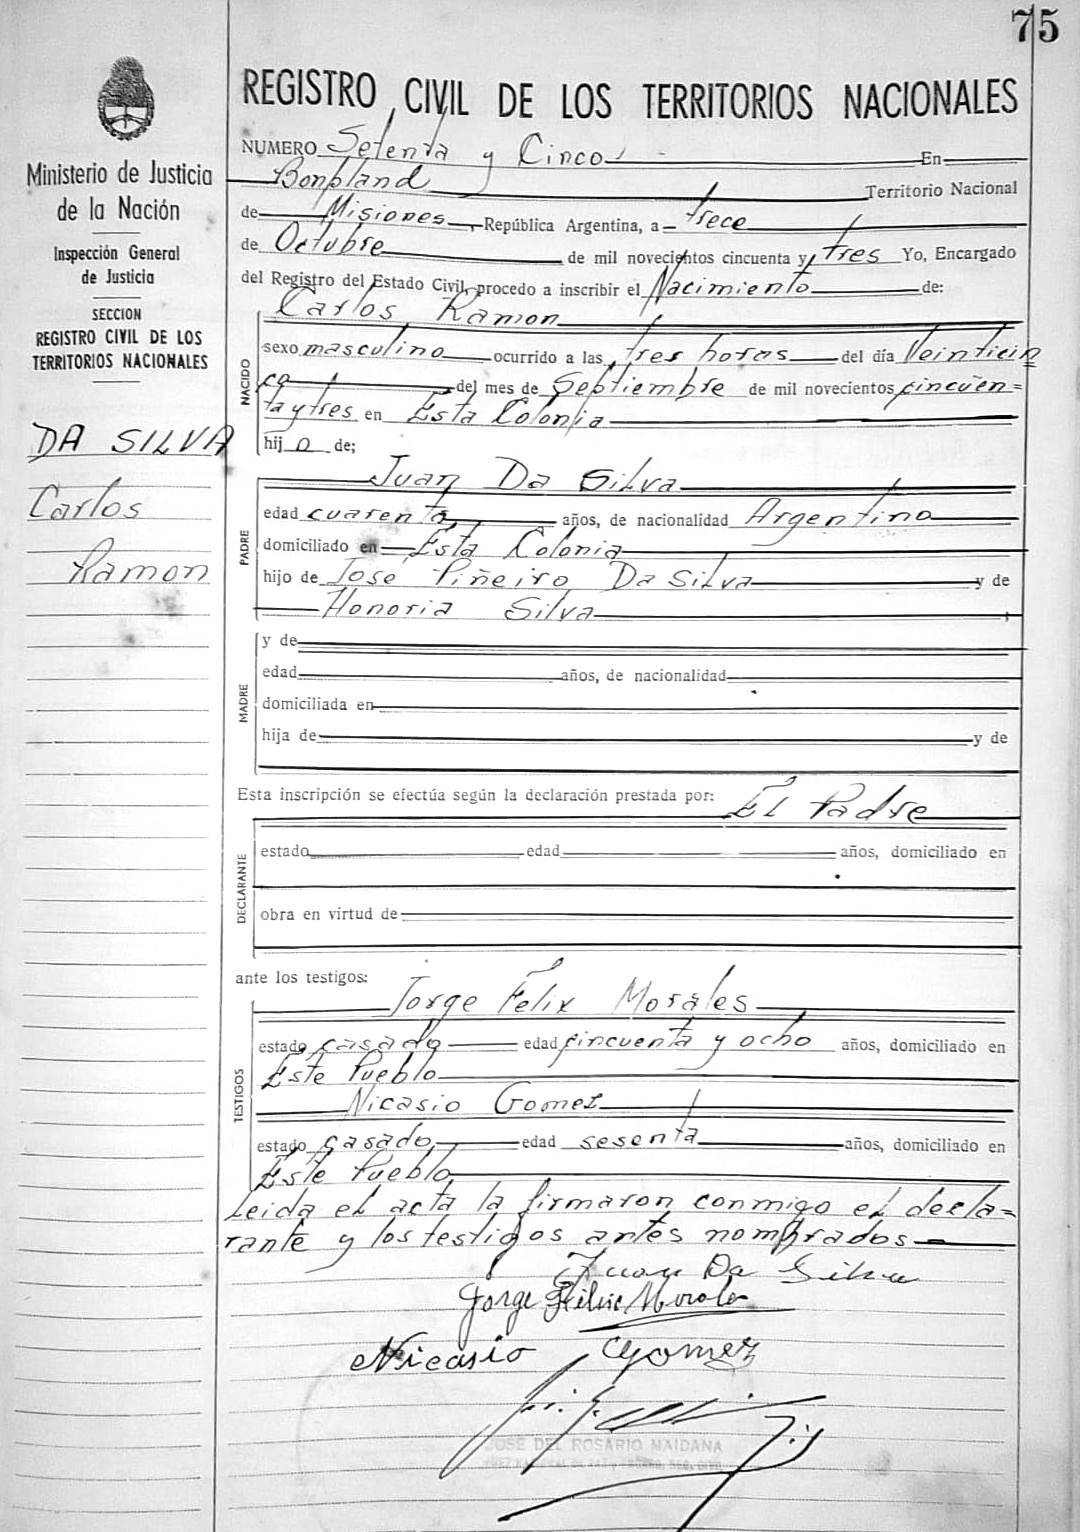 75
REGISTRO CIVIL DE LOS TERRITORIOS NACIONALES
Ministerio de Justicia
de la Nación
Inspección General
de Justicia
SECCION
REGISTRO CIVIL DE LOS
TERRITORIOS NACIONALES
DA SILVA
Carlos
Ramon
NUMERO Setenta y Cinco En
Bonpland Territorio Nacional
de Misiones, República Argentina, a trece
de Octubre de mil novecientos cincuenta y tres Yo, Encargado
del Registro del Estado Civil, procedo a inscribir el Nacimiento de:
NACIDO
Carlos Ramon
sexo masculino ocurrido a las tres horas del día Veinticin
co del mes de Septiembre de mil novecientos cincuen=
ta y tres en Esta Colonia
hijo de;
PADRE
Juan Da Silva
edad cuarenta años, de nacionalidad Argentino
domiciliado en Esta Colonia
hijo de José Piñeiro Da Silva y de
Honoria Silva
MADRE
y de
edad años, de nacionalidad
domiciliada en
hija de y de
Esta inscripción se efectúa según la declaración prestada por: El Padre
DECLARANTE
estado edad años, domiciliado en
obra en virtud de
ante los testigos:
TESTIGOS
Jorge Felix Morales
estado casado edad cincuenta y ocho años, domiciliado en
Este Pueblo
Nicasio Gomez
estado casado edad sesenta años, domiciliado en
Este Pueblo
Leida el acta la firmaron conmigo el decla=
rante y los testigos antes nombrados
Juan Da Silva
Jorge Felix Morales
Nicasio Gomez
JOSE DEL ROSARIO MAIDANA